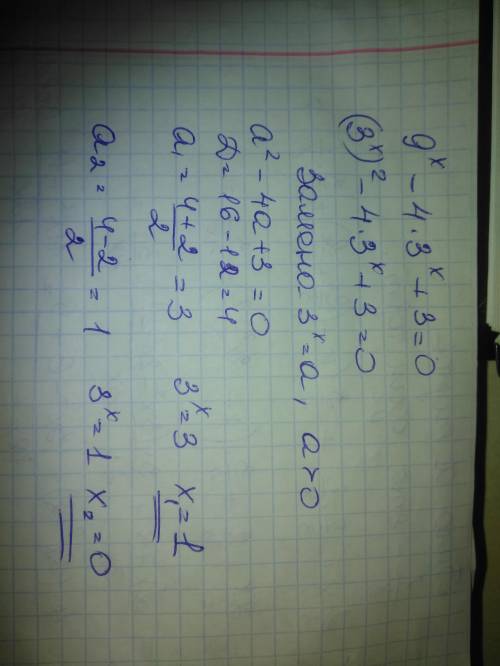 9ˣ - 4·3ˣ + 3 = 0
(3ˣ)² - 4·3ˣ + 3 = 0
Замена 3ˣ = a, a > 0
a² - 4a + 3 = 0
D = 16 - 12 = 4
a₁ = (4+2)/2 = 3 3ˣ = 3 x₁ = 1
a₂ = (4-2)/2 = 1 3ˣ = 1 x₂ = 0